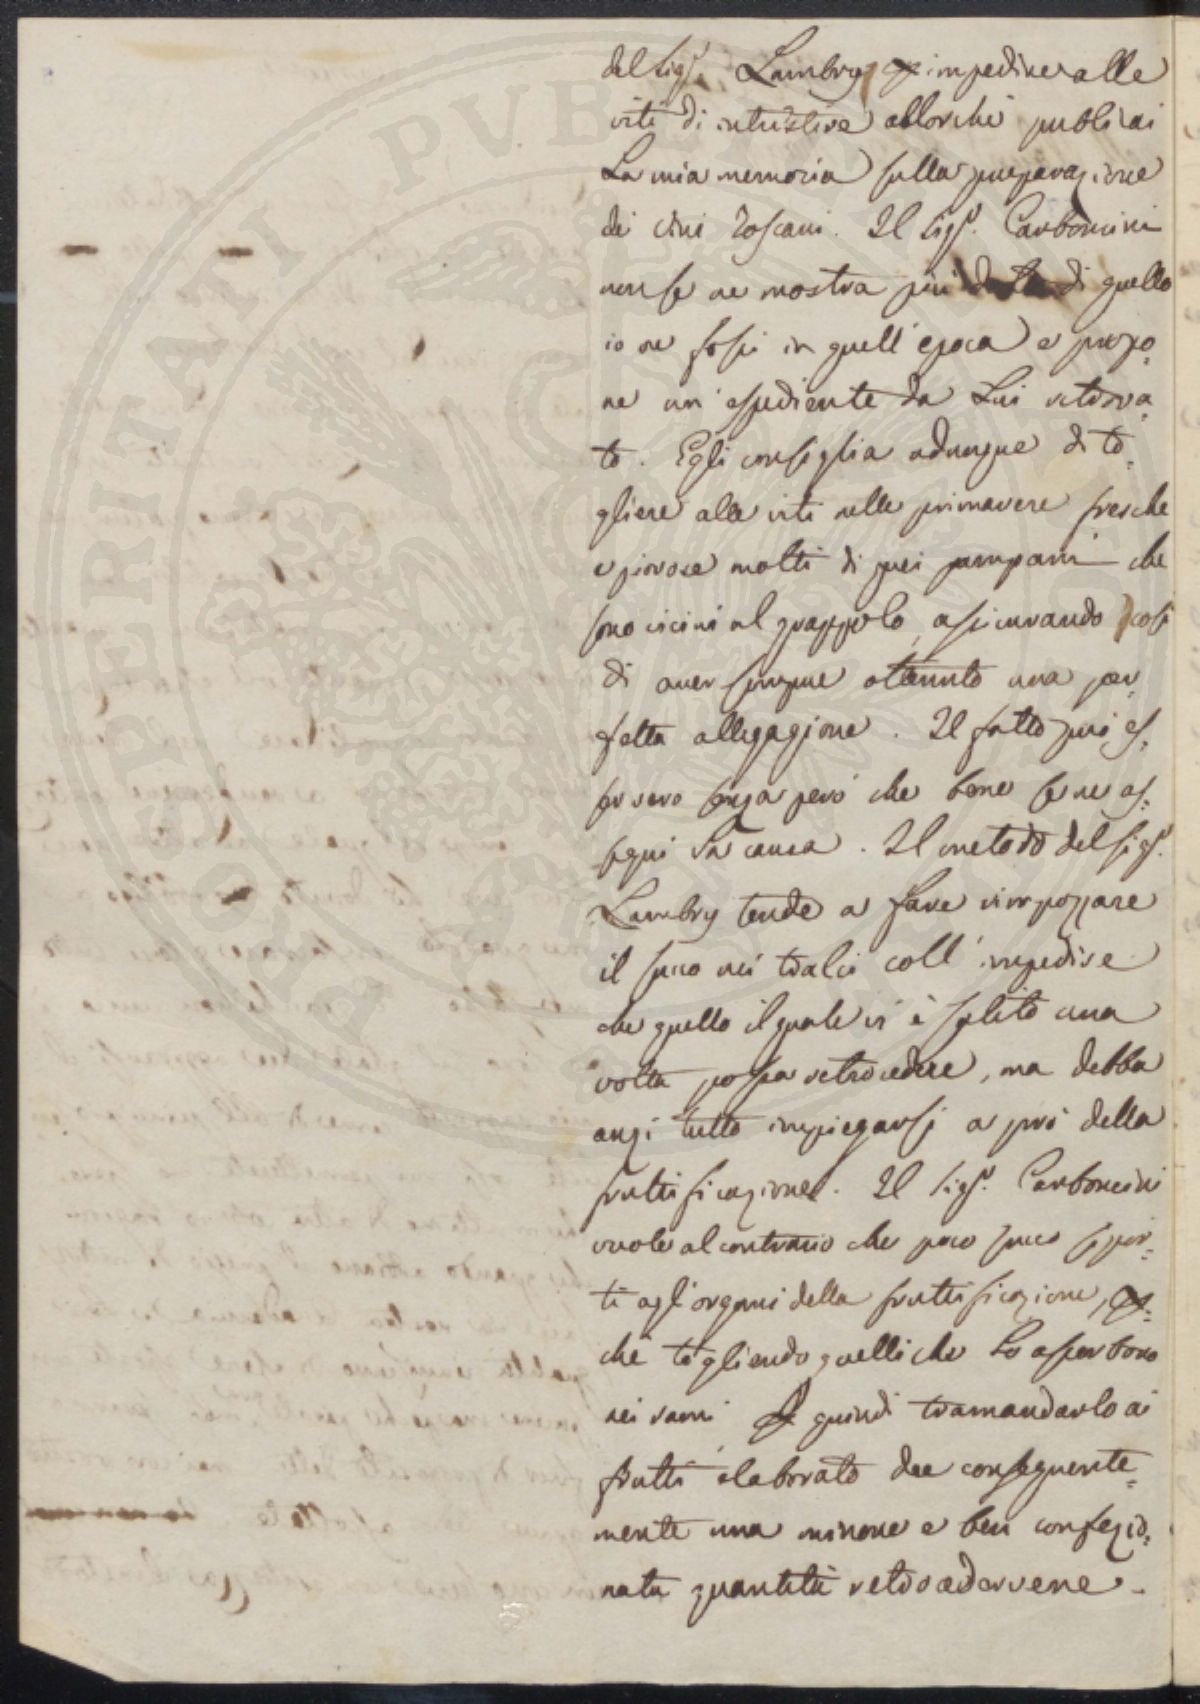 del Sig.r Lambry p impedire alle
viti di intristire allorché publicai
La mia memoria sulla preparazione
dei vini Toscani. Il Sig.r Carboncini
non se ne mostra più di quello
io ne fossi in quell'epoca e propo=
ne un' espediente da Lui ritrova=
to. Egli consiglia adunque di to=
gliere alle viti nelle primavere fresche
e piovose molti di quei pampani che
sono vicini al grappolo, assicurando così
di aver sempre ottenuto una per=
fetta allegagione. Il fatto può es=
ser vero senza però che bene se ne as=
segni La causa. Il metodo del Sig.r
Lambry tende a fare rimpozzare
il succo nei tralci coll' impedire
che quello il quale vi è salito una
volta possa retrocedere, ma debba
anzi tutto impiegarsi a prò della
fruttificazione. Il Sig.r Carboncini
vuole al contrario che poco succo si por=
ti agl'organi della fruttificazione, p=
chè togliendo quelli che Lo assorbono
nei rami p quindi tramandarlo ai
frutti elaborato dee conseguente=
mente una minore e ben confezio=
nata quantità retrocedervene.
PERITATI PVBLICAE